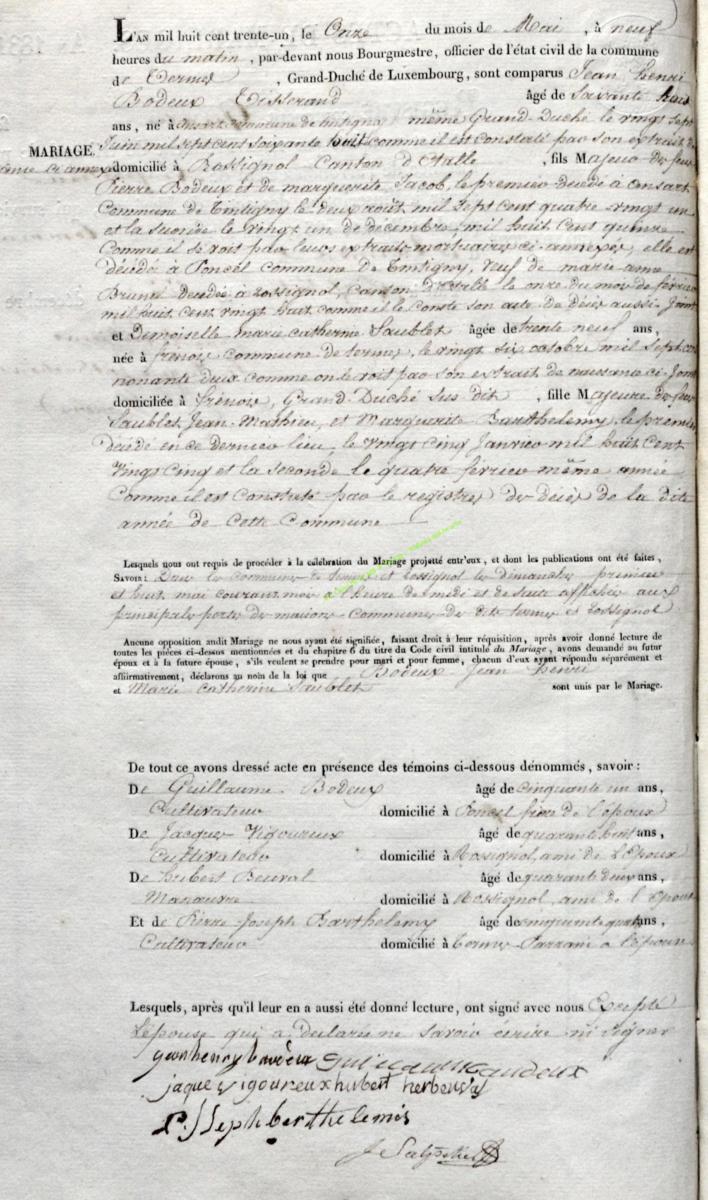 L'AN mil huit cent trente-un, le Onze du mois de Mai, à neuf
heures du matin, par-devant nous Bourgmestre, officier de l'état civil de la commune
de Termes, Grand-Duché de Luxembourg, sont comparus Jean henri
Bodeux Tisserand âgé de Soixante
ans, né à ansart commune de tintigny même Grand Duché le vingt sept
Juin mil sept cent soixante huit comme il est constaté par son extrait de
MARIAGE.
domicilié à Rossignol Canton d'Etalle, fils Majeur de feu
Pierre Bodeux et de marguerite Jacob, le premier décédé à ansart
Commune de Tintigny le deux août mil Sept Cent quatre vingt un
et la seconde le vingt un de decembre, mil huit Cent quinze
Comme il se voit par leurs extraits mortuaires ci-annexés, elle est
décédée à Poncel commune de Tintigny, veuf de marie anne
Brunn decedée à rossignol, Canton d'Etalle le onze du mois de février
mil huit cent vingt huit comme il le conste son acte de décès aussi Joint
et Demoiselle marie catherine Saublet âgée de trente neuf ans,
née à frenois commune de termes, le vingt six octobre mil sept cent
nonante deux comme on le voit par son extrait de naissance ci-Joint
domiciliée à frénois, Grand Duché Sus dit, fille Majeure de feu
Saublet Jean Mathieu, et Marguerite Barthelemy, le premier
décédé en ce dernier lieu, le vingt Cinq Janvier mil huit Cent
Vingt Cinq et la seconde le quatre février même année
Comme il est Constaté par le registre de décès de la dite
année de cette Commune
Lesquels nous ont requis de procéder à la célébration du Mariage projetté entr'eux, et dont les publications ont été faites,
SAVOIR: Dans les communes de termes et rossignol les dimanches premier
et huit mai courant mois à l'heure de midi et de suite affichés aux
principales portes de maisons Communes de dite termes et rossignol
Aucune opposition audit Mariage ne nous ayant été signifiée, faisant droit à leur réquisition, après avoir donné lecture de
toutes les pièces ci-dessus mentionnées et du chapitre 6 du titre du Code civil intitulé du Mariage, avons demandé au futur
époux et à la future épouse, s'ils veulent se prendre pour mari et pour femme, chacun d'eux ayant répondu séparément et
affirmativement, déclarons au nom de la loi que Bodeux Jean henri
et Marie Catherine Saublet sont unis par le Mariage.
De tout ce avons dressé acte en présence des témoins ci-dessous dénommés, savoir :
De Guillaume Bodeux âgé de cinquante un ans,
Cultivateur domicilié à Poncel frère de l'époux
De Jacques Vigoureux âgé de quarante huit ans,
Cultivateur domicilié à Rossignol, ami de l'Epoux
De hubert Beuval âgé de quarante deux ans,
Manœuvre domicilié à Rossignol, ami de l'Epoux
Et de Pierre Joseph Barthelemy âgé de cinquante quatre ans,
Cultivateur domicilié à termes Parrain à l'épouse
Lesquels, après qu'il leur en a aussi été donné lecture, ont signé avec nous Excepté
L'épouse qui a declarée ne savoir écrire ni signer
jean henry baudeux guillaume baudeux
jaque vigoureux hubert herbeuval
p. Joseph berthelemis